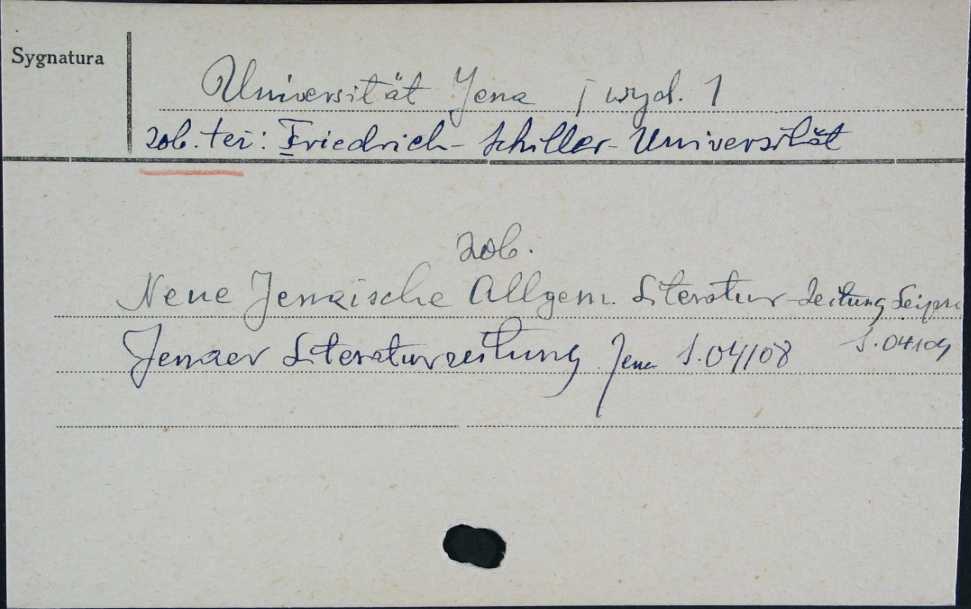 Sygnatura
Universität Jena / wyd. 1
zob. też: Friedrich-Schiller-Universität
zob.
Neue Jenaische Allgem. Literatur-Zeitung Leipzi
Jenaer Literaturzeitung Jena S.04/08 S.04/04